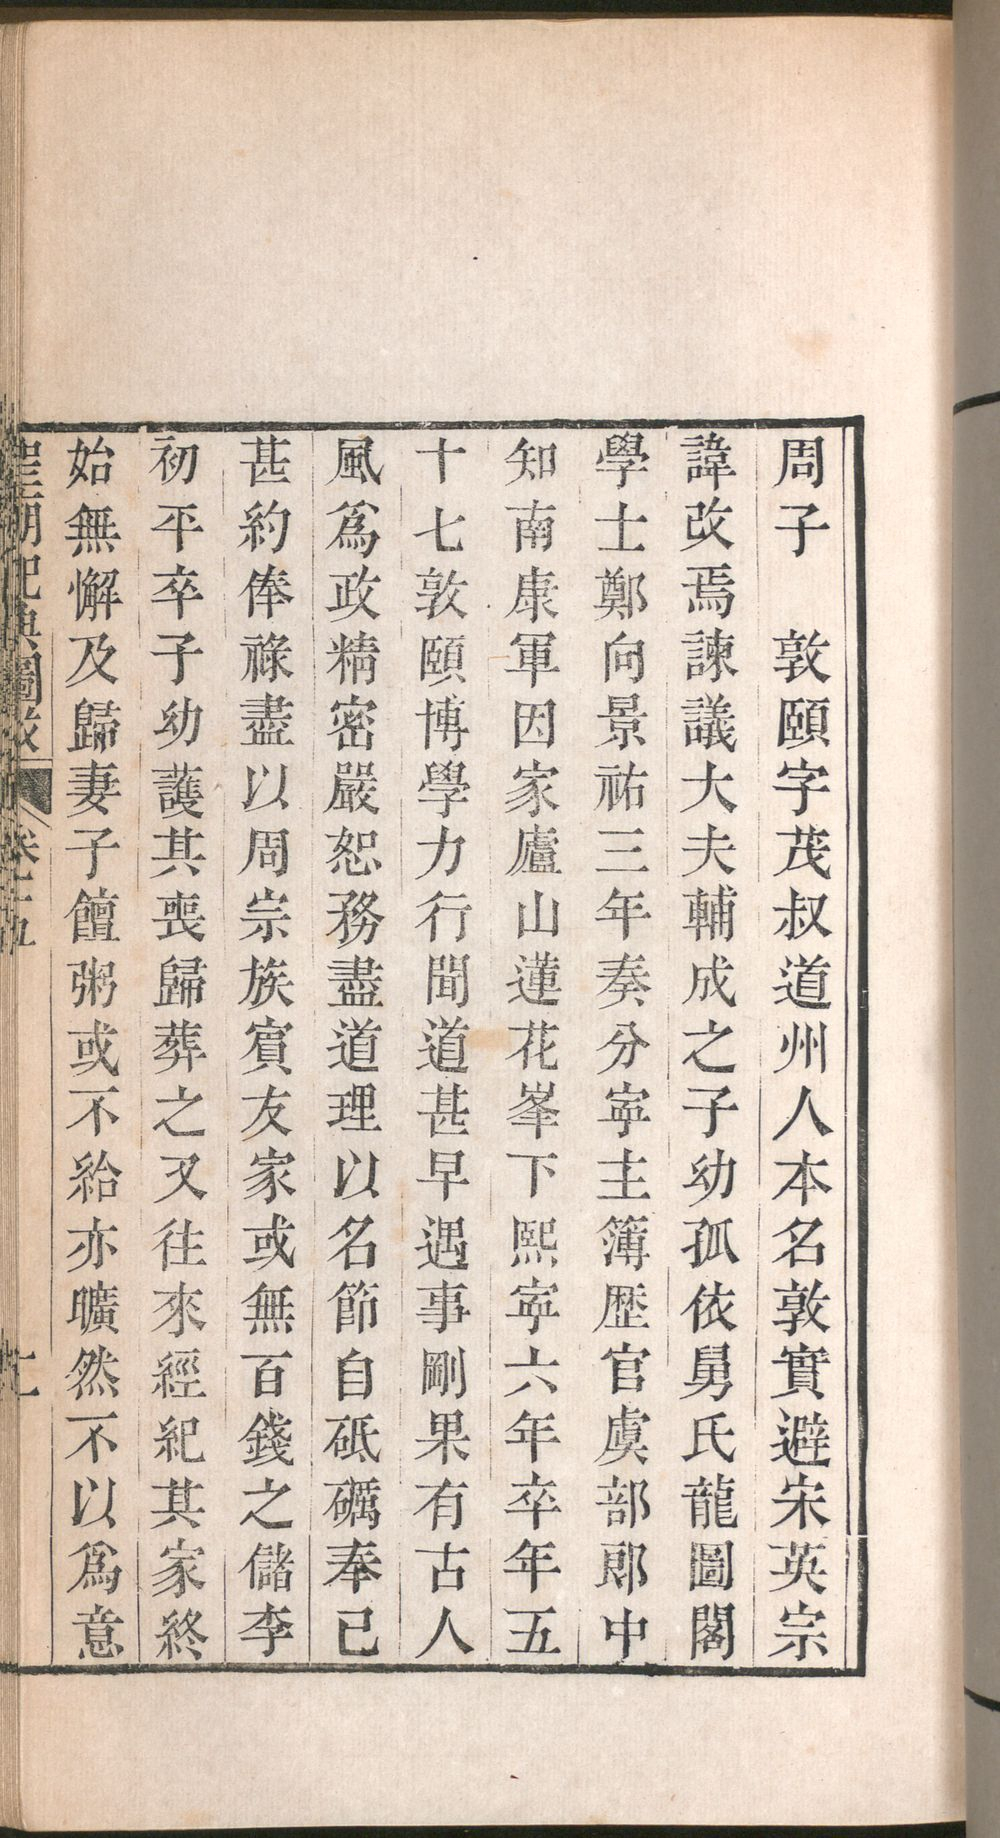 周子　敦頤字茂叔道州人本名敦實避宋英宗
諱改焉諫議大夫輔成之子幼孤依舅氏龍圖閣
學士鄭向景祐三年奏分寧主簿歷官虞部郎中
知南康軍因家廬山蓮花峯下熙寧六年卒年五
十七敦頤博學力行聞道甚早遇事剛果有古人
風爲政精密嚴恕務盡道理以名節自砥礪奉己
甚約俸祿盡以周宗族賓友家或無百錢之儲李
初平卒子幼護其喪歸葬之又往來經紀其家終
始無懈及歸妻子饘粥或不給亦曠然不以爲意